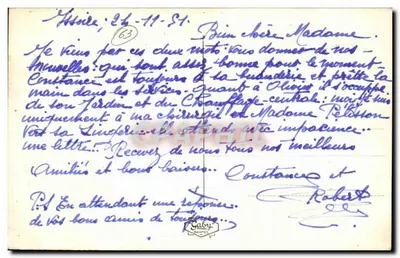 Issoire, 24-11-51.
63
Bien chère Madame.
Je viens par ces deux mots vous donner de nos
nouvelles: qui sont assez bonne pour le moment.
Constance est toujours à sa buanderie et prette la
main dans les services. quant à s'occupe
de son Jardin et du Chauffage-centrale; moi je suis
uniquement à ma et Madame Pélisson
vers sa Lingerie elle attend avec impacience
une lettre. Recevez de nous tous nos meilleurs
Amitiés et bons baisers.
Constance et
Robert
P.S En attendant une reponse
de vos bons amis de toujours..
Gaby